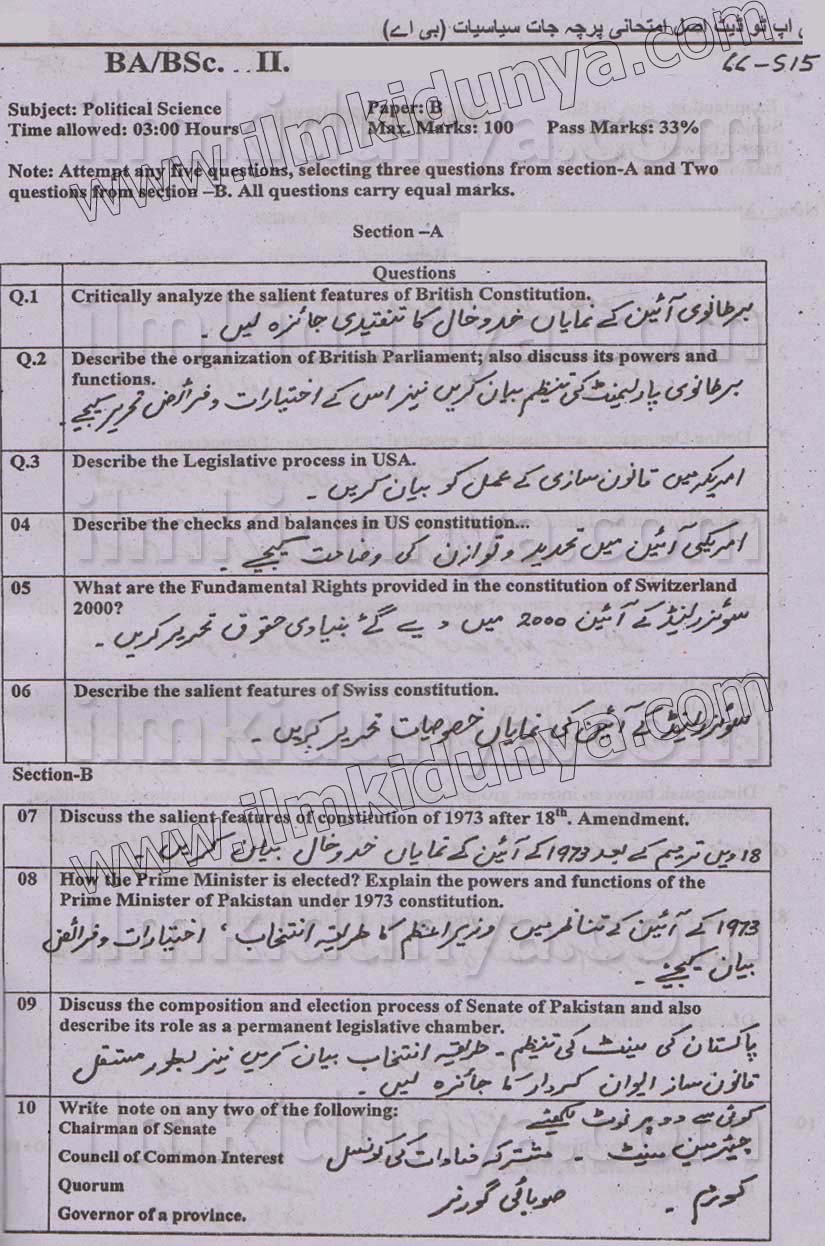 اپ ٹو ڈیٹ اصل امتحانی پرچہ جات سیاسیات (بی اے)
BA/BSc. . . II.
66-S15
Subject: Political Science Paper: B
Time allowed: 03:00 Hours Max. Marks: 100 Pass Marks: 33%
Note: Attempt any five questions, selecting three questions from section-A and Two
questions from section –B. All questions carry equal marks.
Section –A
Questions
Q.1 Critically analyze the salient features of British Constitution.
برطانوی آئین کے نمایاں خدوخال کا تنقیدی جائزہ لیں ۔
Q.2 Describe the organization of British Parliament; also discuss its powers and
functions.
برطانوی پارلیمنٹ کی تنظیم بیان کریں نیز اس کے اختیارات و فرائض تحریر کیجیے ۔
Q.3 Describe the Legislative process in USA.
امریکہ میں قانون سازی کے عمل کو بیان کریں ۔
04 Describe the checks and balances in US constitution...
امریکی آئین میں تحدید و توازن کی وضاحت کیجیے ۔
05 What are the Fundamental Rights provided in the constitution of Switzerland
2000?
سوئزرلینڈ کے آئین 2000 میں دیے گئے بنیادی حقوق تحریر کریں ۔
06 Describe the salient features of Swiss constitution.
سوئزرلینڈ کے آئین کی نمایاں خصوصیات تحریر کریں ۔
Section-B
07 Discuss the salient features of constitution of 1973 after 18th. Amendment.
18 ویں ترمیم کے بعد 1973 کے آئین کے نمایاں خدوخال بیان کریں ۔
08 How the Prime Minister is elected? Explain the powers and functions of the
Prime Minister of Pakistan under 1973 constitution.
1973 کے آئین کے تناظر میں وزیراعظم کا طریقہ انتخاب ، اختیارات و فرائض
بیان کیجیے ۔
09 Discuss the composition and election process of Senate of Pakistan and also
describe its role as a permanent legislative chamber.
پاکستان کی سینٹ کی تنظیم ۔ طریقہ انتخاب بیان کریں نیز بطور مستقل
قانون ساز ایوان کردار کا جائزہ لیں ۔
10 Write note on any two of the following: کوئی سے دو پر نوٹ لکھیئے
Chairman of Senate چیئرمین سینٹ ۔
Council of Common Interest مشترکہ مفادات کی کونسل
Quorum کورم ۔
Governor of a province. صوبائی گورنر
www.ilmkidunya.com
www.ilmkidunya.com
ilmkidunya.com
ilmkidunya.com
ilmkidunya.com
ilmkidunya.com
ilmkidunya.com
ilmkidunya.com
ilmkidunya.com